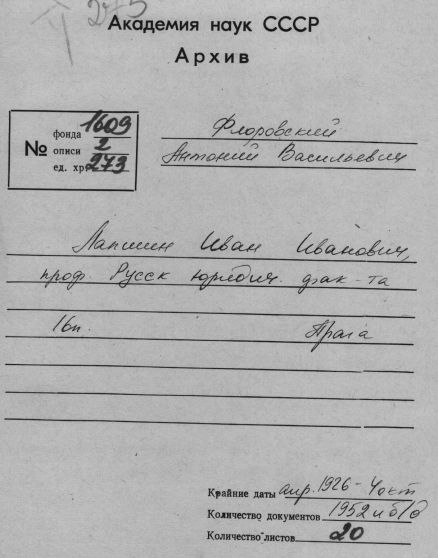 275
Академия наук СССР
Архив
№
фонда 1609
описи 2
ед. хр. 273
Флоровский
Антоний Васильевич
Лапшин Иван Иванович,
проф. Русск юридич. фак-та
16п. Прага
Крайние даты апр. 1926 - 4 окт
Количество документов 1952 и б/д
Количество листов 20